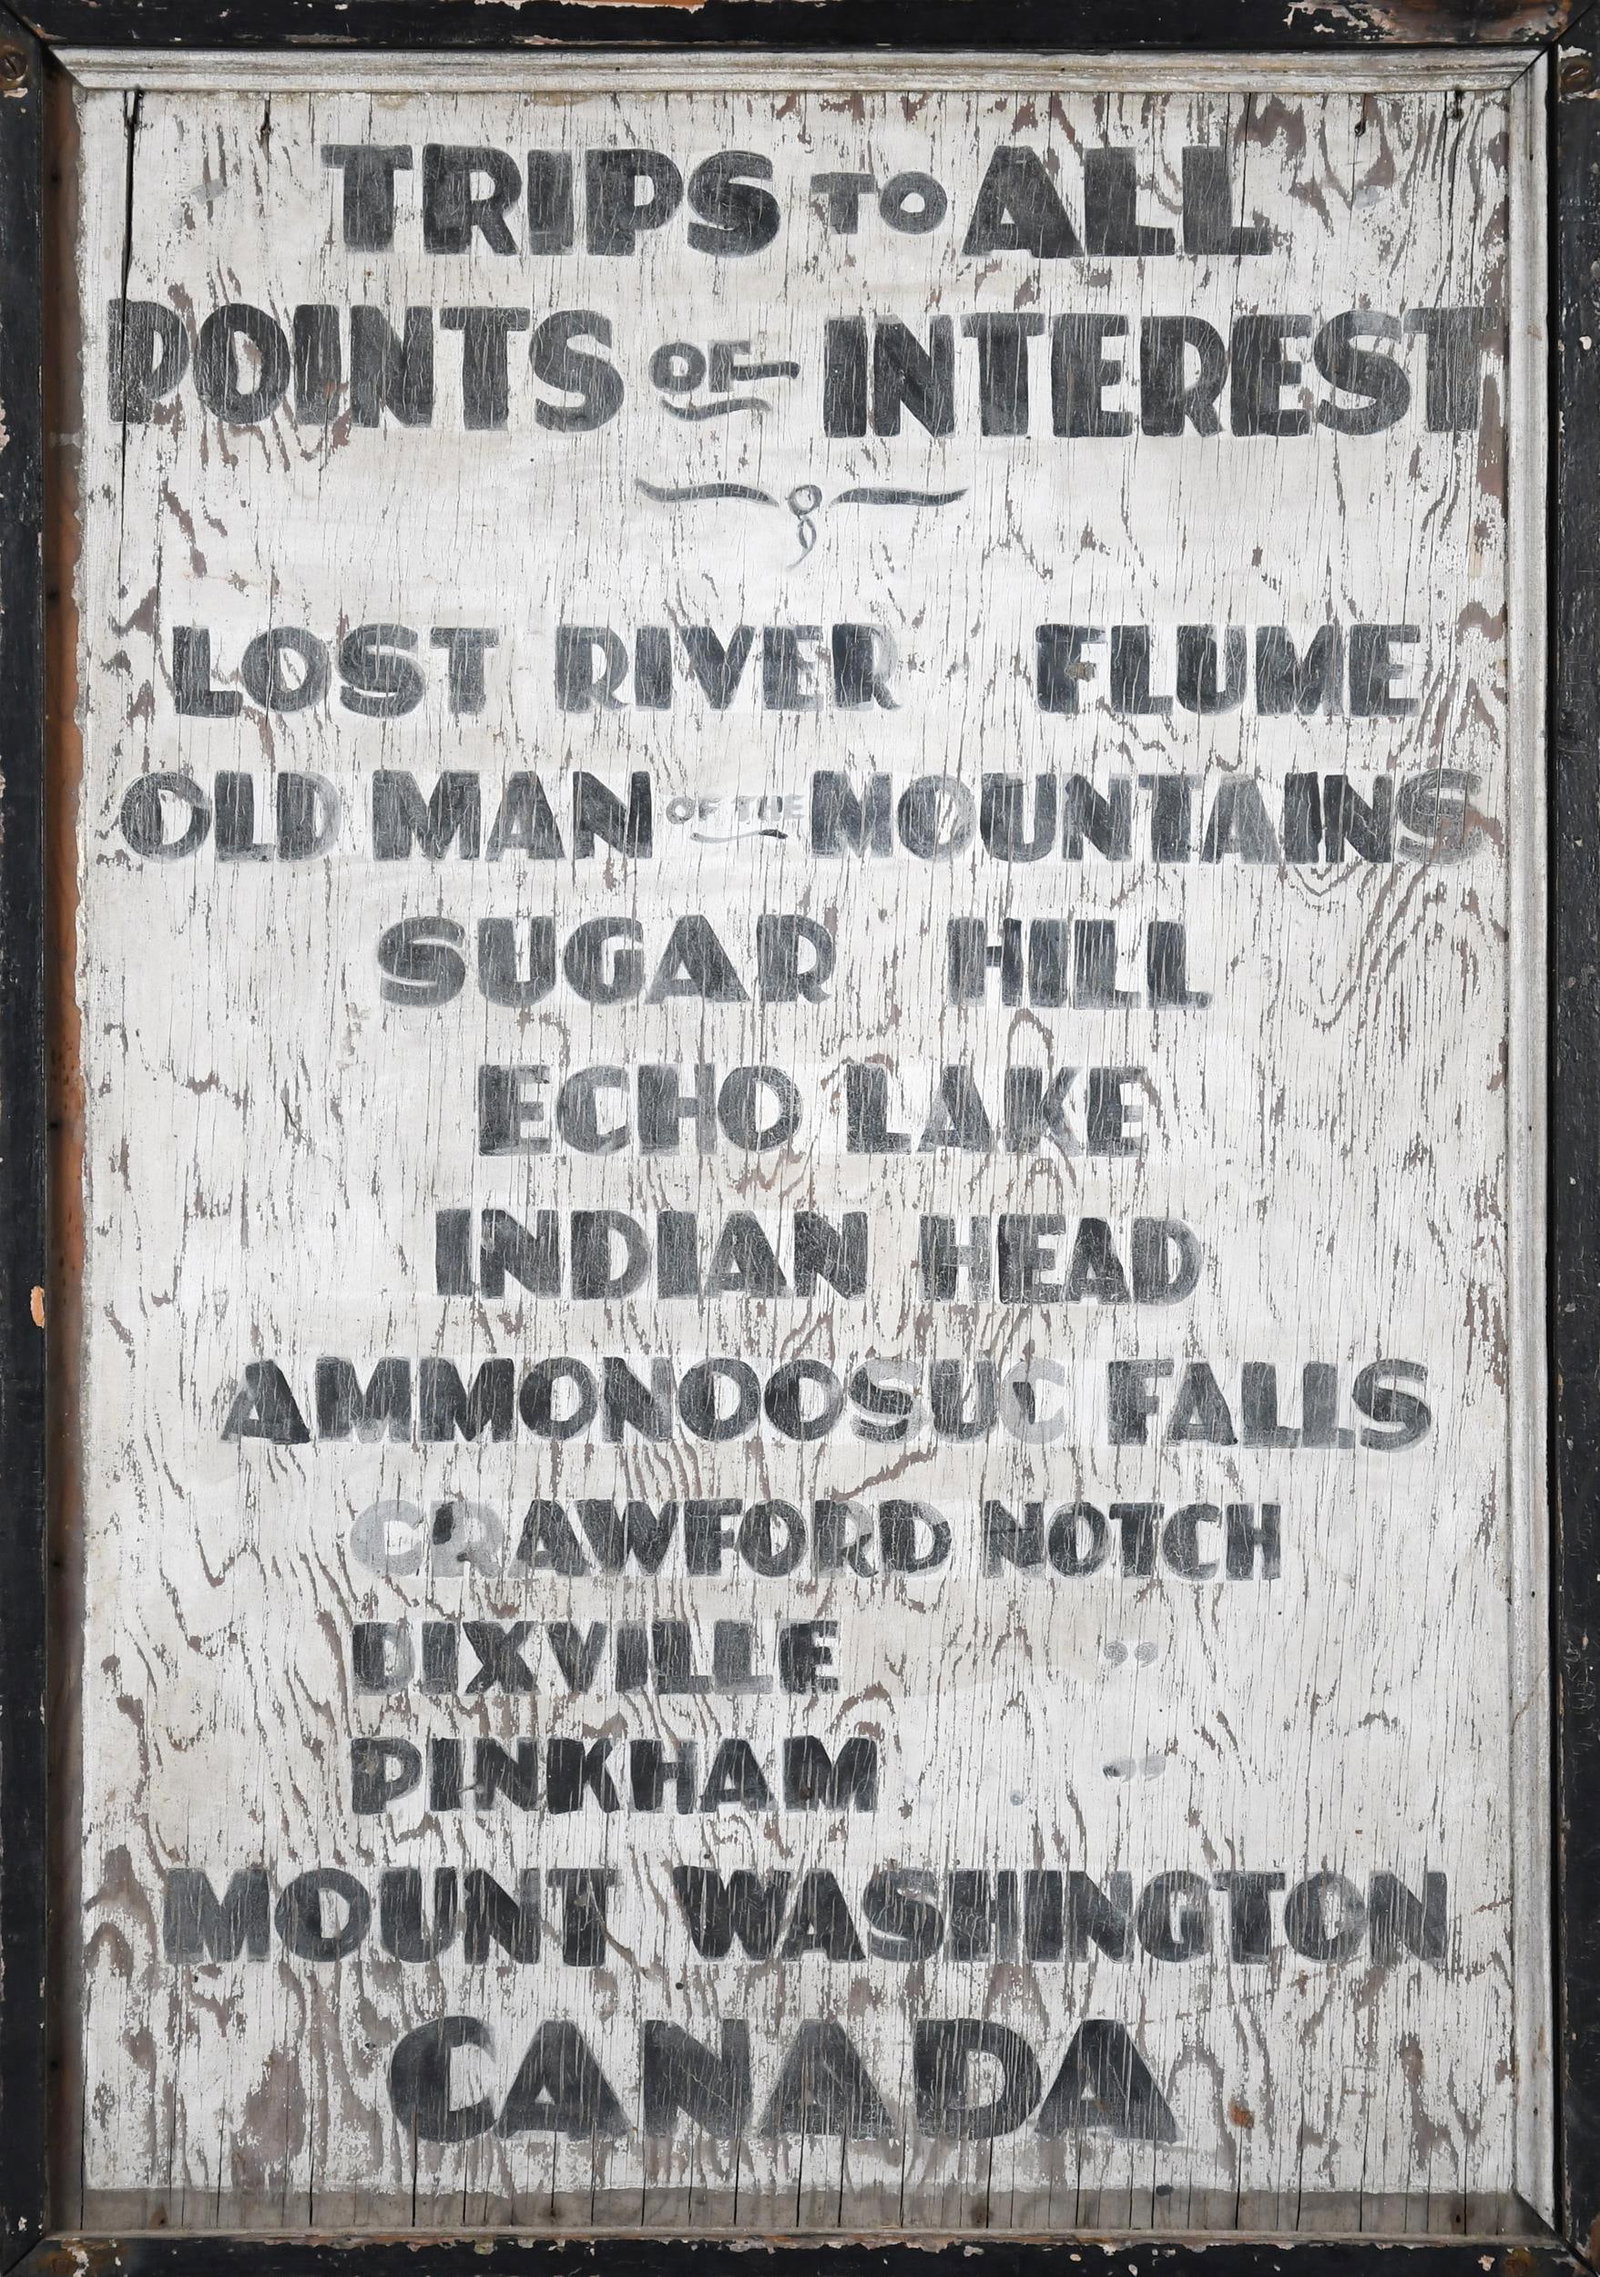 TRIPS TO ALL
POINTS OF INTEREST
LOST RIVER FLUME
OLD MAN OF THE MOUNTAINS
SUGAR HILL
ECHO LAKE
INDIAN HEAD
AMMONOOSUC FALLS
CRAWFORD NOTCH
DIXVILLE "
PINKHAM "
MOUNT WASHINGTON
CANADA